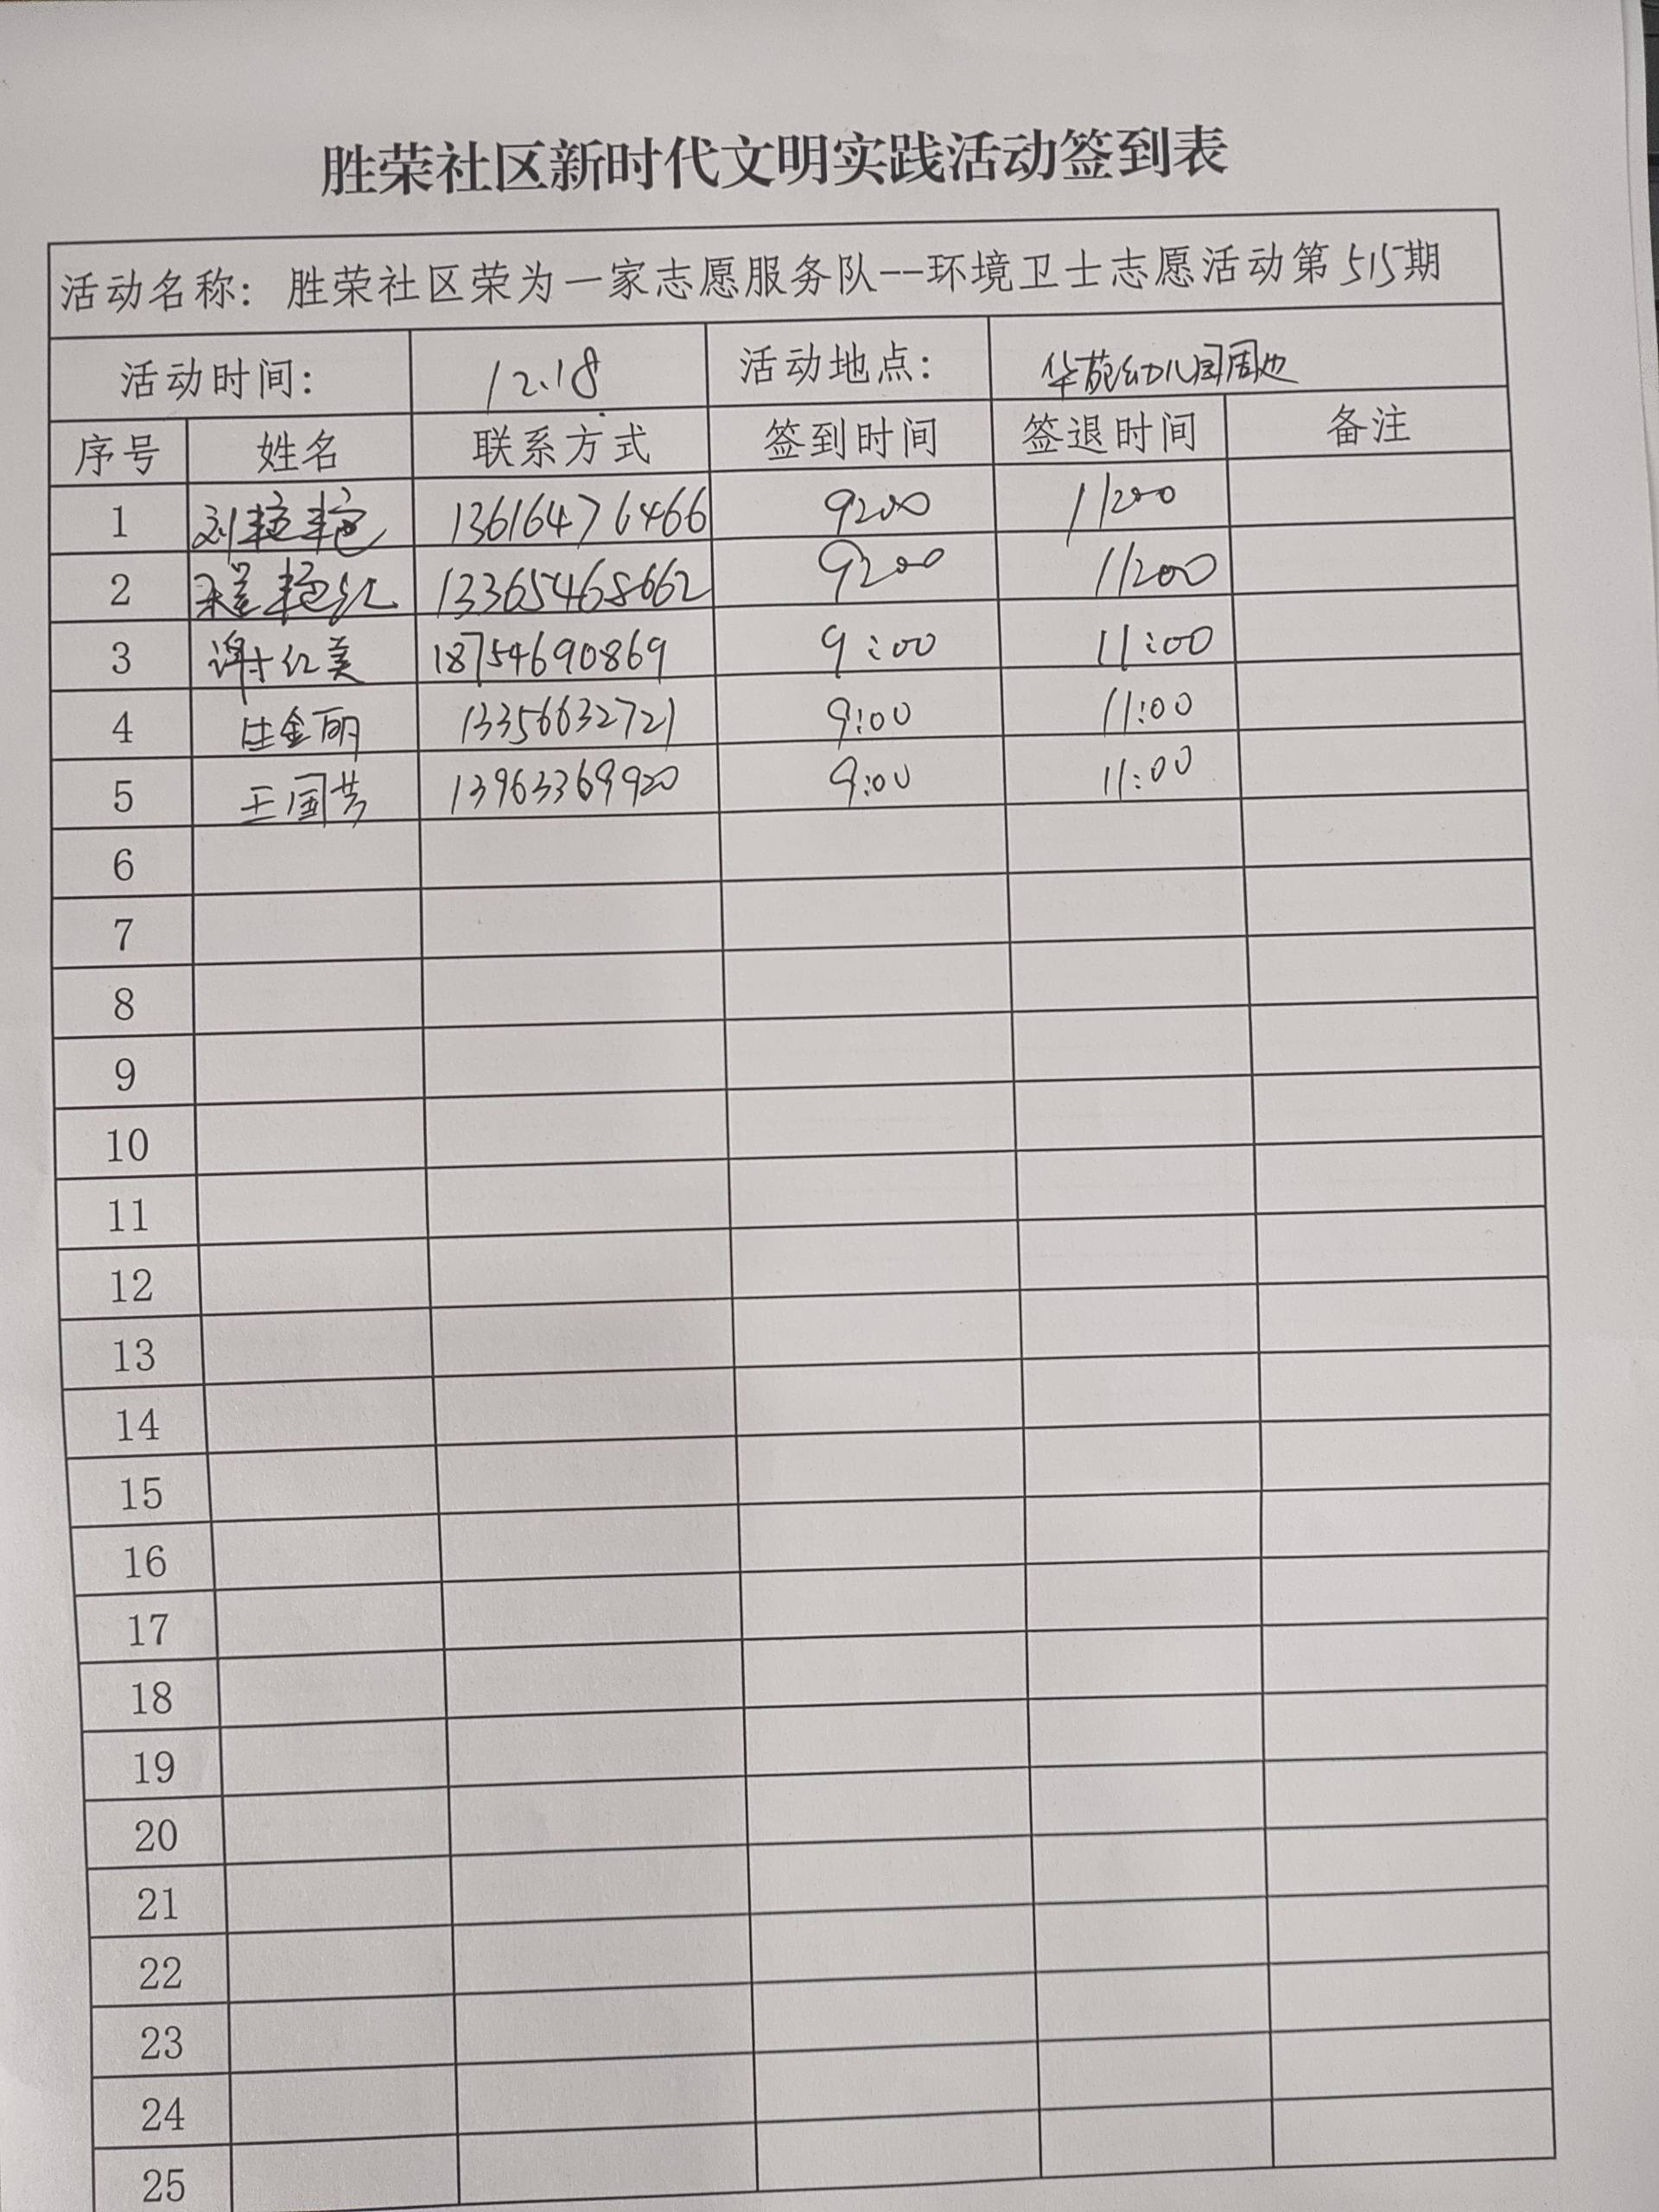 胜荣社区新时代文明实践活动签到表
活动名称：胜荣社区荣为一家志愿服务队--环境卫士志愿活动第515期
活动时间： 12.18 活动地点： 华苑幼儿园周边
序号 姓名 联系方式 签到时间 签退时间 备注
1 刘艳艳 13616476466 9:00 11:00
2 艳红 13365468662 9:00 11:00
3 谢红美 18754690869 9:00 11:00
4 金丽 13356632721 9:00 11:00
5 王国芳 13963369920 9:00 11:00
6
7
8
9
10
11
12
13
14
15
16
17
18
19
20
21
22
23
24
25